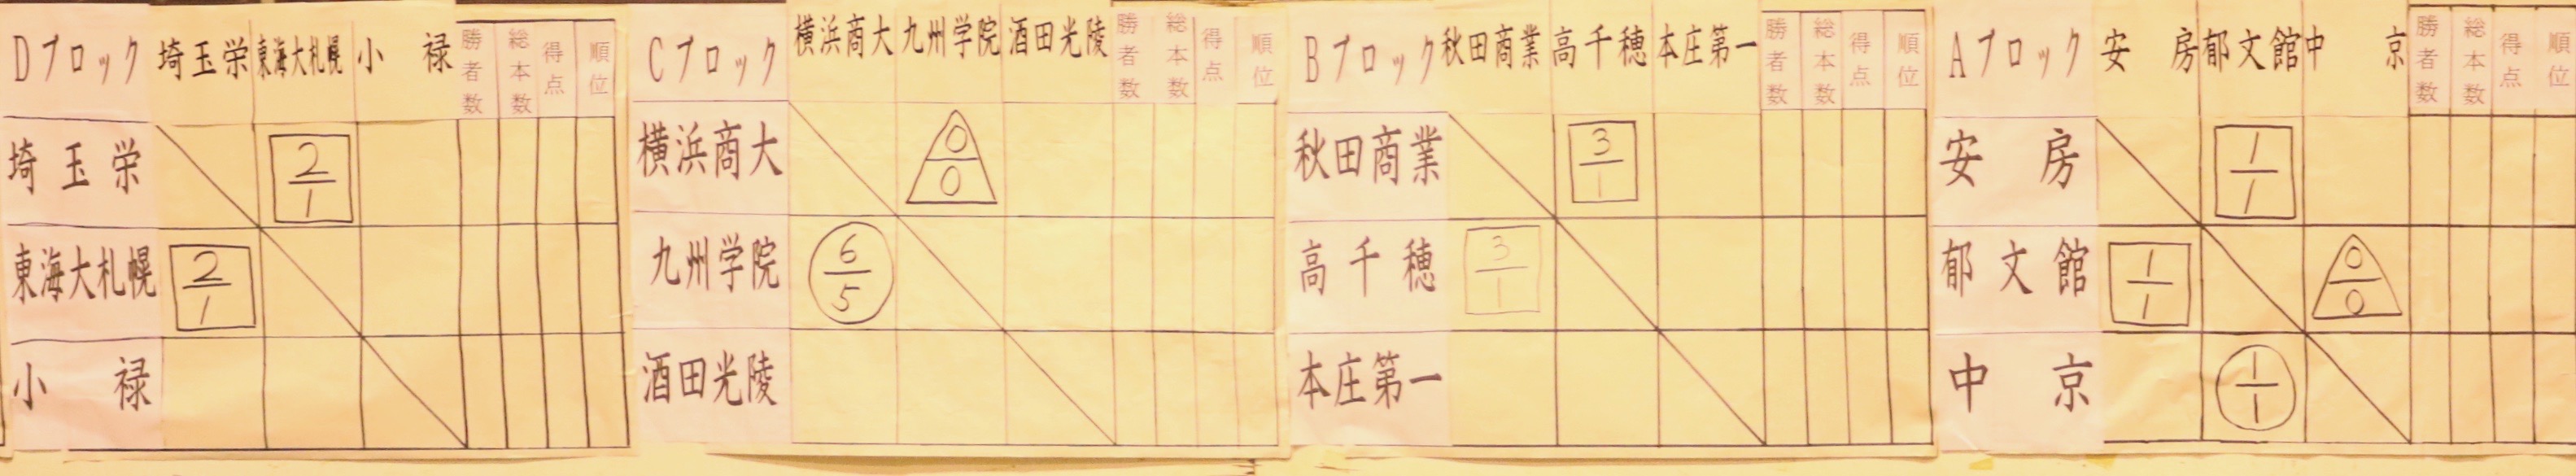 Dブロック 埼玉栄 東海大札幌 小禄 勝者数 総本数 得点 順位
埼玉栄 2/1
東海大札幌 2/1
小禄
Cブロック 横浜商大 九州学院 酒田光陵 勝者数 総本数 得点 順位
横浜商大 0/0
九州学院 6/5
酒田光陵
Bブロック 秋田商業 高千穂 本庄第一 勝者数 総本数 得点 順位
秋田商業 3/1
高千穂 3/1
本庄第一
Aブロック 安房 郁文館 中京 勝者数 総本数 得点 順位
安房 1/1
郁文館 1/1 0/0
中京 1/1